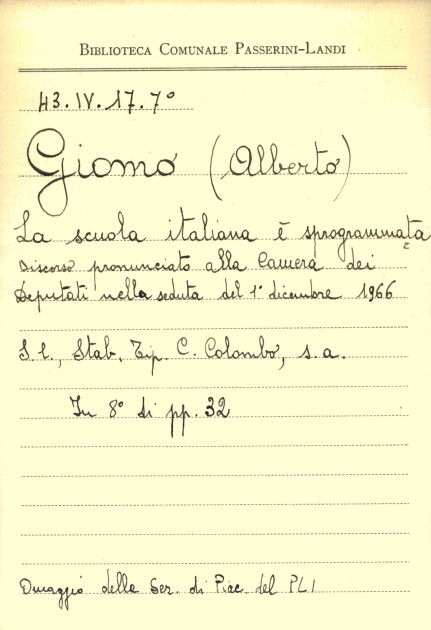 BIBLIOTECA COMUNALE PASSERINI-LANDI
43.IV.17.7°
Giomo (Alberto)
La scuola italiana è sprogrammata
Discorso pronunciato alla Camera dei
Deputati nella seduta del 1° dicembre 1966
S.l., Stab. Tip. C. Colombo, s.a.
In 8° di pp. 32
Omaggio della Sez. di Piac. del PLI